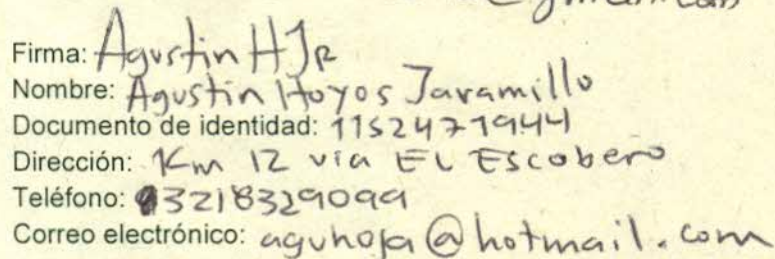 @gmail.com
Firma: Agustin HJR
Nombre: Agustin Hoyos Jaramillo
Documento de identidad: 1152471944
Dirección: Km 12 via EL Escobero
Teléfono: 3218329099
Correo electrónico: aguhoja@hotmail.com